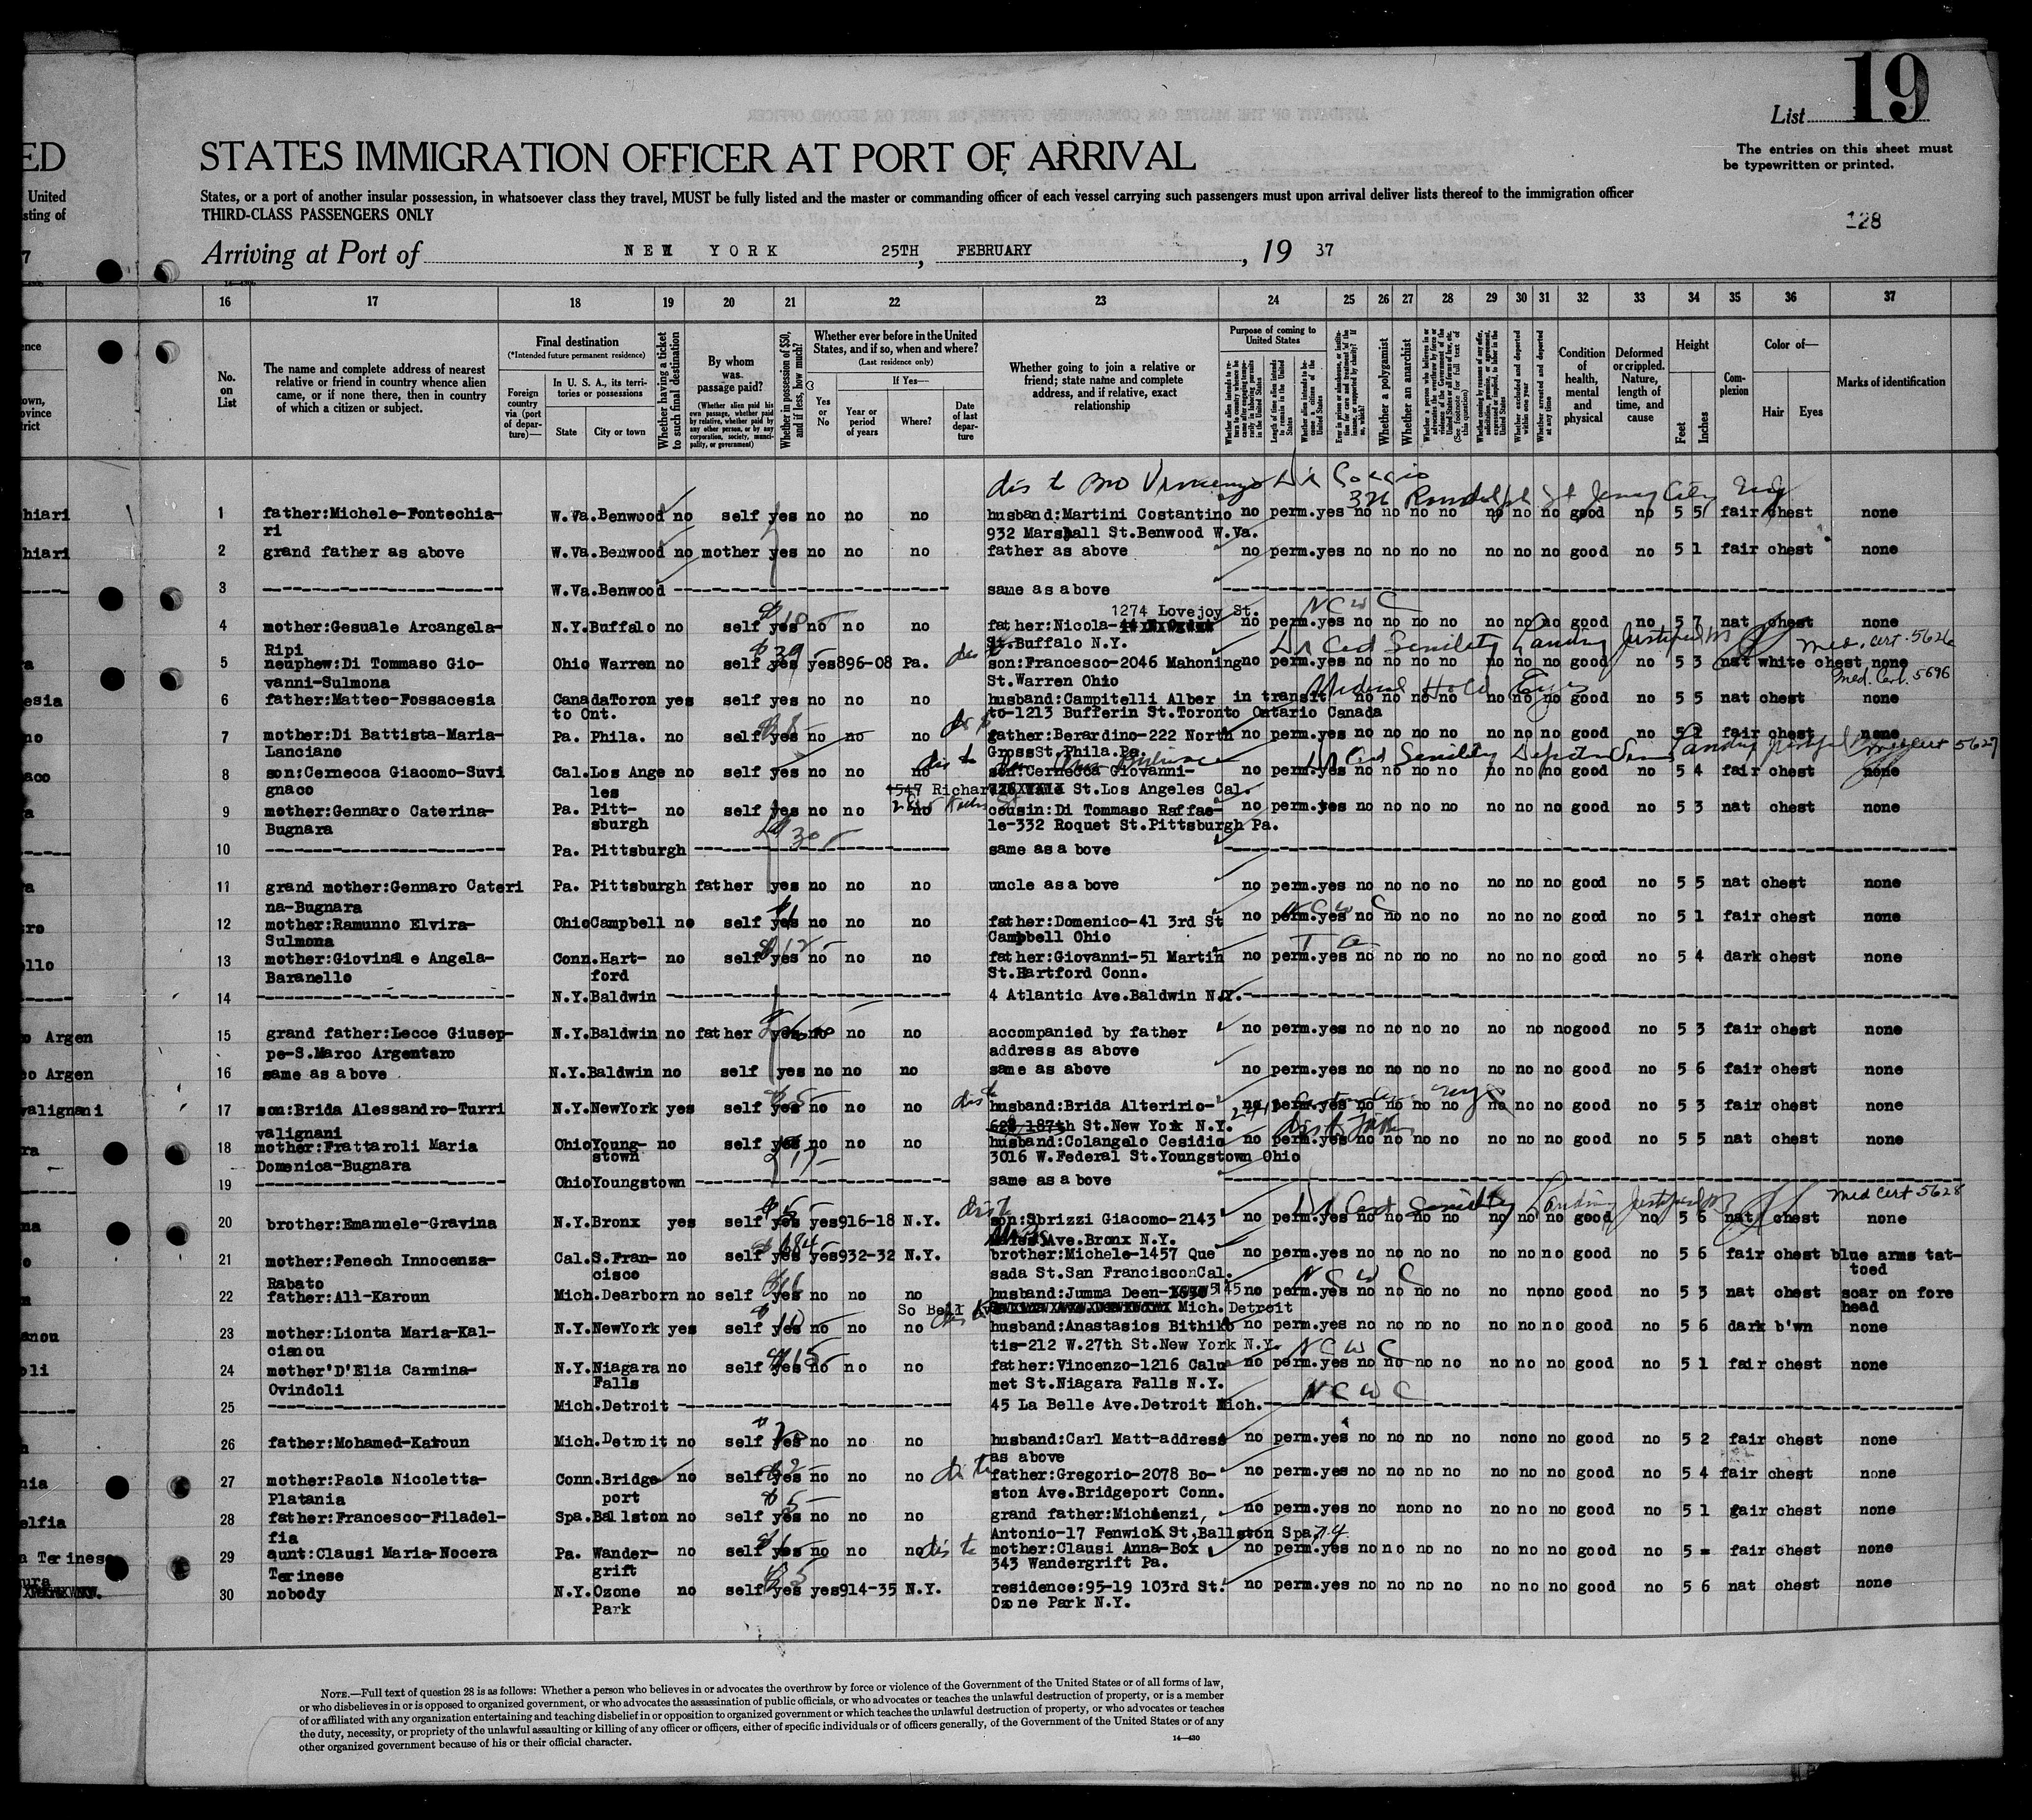 List 19
The entries on this sheet must
be typewritten or printed.
ED
STATES IMMIGRATION OFFICER AT PORT OF ARRIVAL
United
States, or a port of another insular possession, in whatsoever class they travel, MUST be fully listed and the master or commanding officer of each vessel carrying such passengers must upon arrival deliver lists thereof to the immigration officer
sting of
THIRD-CLASS PASSENGERS ONLY
128
7
Arriving at Port of NEW YORK 25TH, FEBRUARY, 19 37
16 17 18 19 20 21 22 23 24 25 26 27 28 29 30 31 32 33 34 35 36 37
No. on List
The name and complete address of nearest
relative or friend in country whence alien
came, or if none there, then in country
of which a citizen or subject.
Final destination
(*Intended future permanent residence)
Foreign country via (port of departure)—
In U. S. A., its territories or possessions
State
City or town
Whether having a ticket to such final destination
By whom was passage paid?
(Whether alien paid his own passage, whether paid by relative, whether paid by any other person, or by any corporation, society, municipality, or government)
Whether in possession of $50, and if less, how much?
Whether ever before in the United States, and if so, when and where?
(Last residence only)
Yes or No
If Yes—
Year or period of years
Where?
Date of last departure
Whether going to join a relative or
friend; state name and complete
address, and if relative, exact
relationship
Purpose of coming to United States
Whether a polygamist
Whether an anarchist
Condition of health, mental and physical
Deformed or crippled. Nature, length of time, and cause
Height
Feet
Inches
Complexion
Color of—
Hair
Eyes
Marks of identification
dis to Bro Vincenzo
Randolph St Jersey City NJ
hiari 1 father:Michele-Fontechia- W.Va. Benwood no self yes no no no husband:Martini Costantino no perm. yes no no no no no no no good no 5 5 fair chest none
ri 932 Marshall St.Benwood W.Va.
hiari 2 grand father as above W.Va. Benwood no mother yes no no no father as above no perm. yes no no no no no no no good no 5 1 fair chest none
3 W.Va. Benwood same as above
1274 Lovejoy St. NCWC
4 mother:Gesuale Arcangela- N.Y. Buffalo no self yes no no no father:Nicola- no perm. yes no no no no no no no good no 5 7 nat chest none
Ripi St.Buffalo N.Y. Dr Cert Senility Landing Justified Med. Cert. 5626
5 neuphew:Di Tommaso Gio- Ohio Warren no self yes yes 896-08 Pa. son:Francesco-2046 Mahoning no perm. yes no no no no no no no good no 5 3 nat white chest none
vanni-Sulmona St.Warren Ohio Med. Cert. 5696
Medical Hold Eyes
esia 6 father:Matteo-Fossacesia Canada Toron yes self yes no no no husband:Campitelli Alber in transit no no no no no good no 5 5 nat chest none
to Ont. to-1213 Bufferin St.Toronto Ontario Canada
no 7 mother:Di Battista-Maria- Pa. Phila. no self yes no no no father:Berardino-222 North no perm. yes no no no no no no no good no 5 2 fair chest none
Lanciano GrossSt.Phila.Pa.
dis to Dr Cert Senility Landing justified Med Cert 5627
aco 8 son:Cernecca Giacomo-Suvi Cal. Los Ange no self yes no no no son:Cernecca Giovanni- no perm. yes no no no no no no no good no 5 4 fair chest none
gnaco les 1547 Richar St.Los Angeles Cal.
a 9 mother:Gennaro Caterina- Pa. Pitt- no self yes no no no cousin:Di Tommaso Raffae- no perm. yes no no no no no no no good no 5 3 nat chest none
Bugnara sburgh 30 le-332 Roquet St.Pittsburgh Pa.
10 Pa. Pittsburgh same as a bove
a 11 grand mother:Gennaro Cateri Pa. Pittsburgh father yes no no no uncle as a bove no perm. yes no no no no no no no good no 5 5 nat chest none
na-Bugnara
tro 12 mother:Ramunno Elvira- Ohio Campbell no self yes no no no father:Domenico-41 3rd St no perm. yes no no no no no no no good no 5 1 fair chest none
Sulmona Campbell Ohio
ello 13 mother:Giovinal e Angela- Conn. Hart- no self yes no no no father:Giovanni-51 Martin no perm. yes no no no no no no no good no 5 4 dark chest none
Baranello ford St.Hartford Conn.
14 N.Y. Baldwin 4 Atlantic Ave.Baldwin N.Y.
o Argen 15 grand father:Lecce Giusep- N.Y. Baldwin no father yes no no no accompanied by father no perm. yes no no no no no no no good no 5 3 fair chest none
pe-S.Marco Argentaro address as above
o Argen 16 same as a bove N.Y. Baldwin no self yes no no no same as above no perm. yes no no no no no no no good no 5 6 fair chest none
valignani 17 son:Brida Alessandro-Turri N.Y. NewYork yes self yes no no no dis to husband:Brida Alteririo- no perm. yes no no no no no no no good no 5 3 fair chest none
valignani 187th St.New York N.Y.
ra 18 mother:Frattaroli Maria Ohio Young- no self yes no no no husband:Colangelo Cesidio no perm. yes no no no no no no no good no 5 5 nat chest none
Domenica-Bugnara stown 3016 W.Federal St.Youngstown Ohio
19 Ohio Youngstown same as a bove
dis to Dr Cert Senility Landing Justified Med Cert 5628
na 20 brother:Emanuele-Gravina N.Y. Bronx yes self yes yes 916-18 N.Y. son:Sbrizzi Giacomo-2143 no perm. yes no no no no no no no good no 5 6 nat chest none
Ave.Bronx N.Y.
o 21 mother:Fenech Innocenza- Cal. S.Fran- no self yes yes 932-32 N.Y. brother:Michele-1457 Que no perm. yes no no no no no no no good no 5 6 fair chest blue arms tat-
Rabato cisco sada St.San Francisco Cal. NCWC toed
22 father:Ali-Karoun Mich. Dearborn no self yes no no no husband:Jumma Deen- 5145 no perm. yes no no no no no no no good no 5 3 nat chest scar on fore
Mich. Detroit head
anou 23 mother:Lionta Maria-Kal- N.Y. NewYork yes self yes no no no husband:Anastasios Bithiko no perm. yes no no no no no no no good no 5 6 dark b'wn none
cianou tis-212 W.27th St.New York N.Y. NCWC
oli 24 mother'D'Elia Carmina- N.Y. Niagara no self yes no no no father:Vincenzo-1216 Calu no perm. yes no no no no no no no good no 5 1 fair chest none
Ovindoli Falls met St.Niagara Falls N.Y. NCWC
25 Mich. Detroit 45 La Belle Ave.Detroit Mich.
a 26 father:Mohamed-Karoun Mich. Detroit no self yes no no no husband:Carl Matt-address no perm. yes no no no no no no no good no 5 2 fair chest none
as above
nia 27 mother:Paola Nicoletta- Conn. Bridge- no self yes no no no dis to father:Gregorio-2078 Bo- no perm. yes no no no no no no no good no 5 4 fair chest none
Platania port ston Ave.Bridgeport Conn.
elfia 28 father:Francesco-Filadel- Spa. Ballston no self yes no no no grand father:Michienzi, no perm. yes no no no no no no no good no 5 1 fair chest none
fia Antonio-17 Fenwick St.Ballston Spa.
a Terinese 29 aunt:Clausi Maria-Nocera Pa. Wander- no self yes no no no dis to mother:Clausi Anna-Box no perm. yes no no no no no no no good no 5 = fair chest none
Terinese grift 343 Wandergrift Pa.
30 nobody N.Y. Ozone no self yes yes 914-35 N.Y. residence:95-19 103rd St. no perm. yes no no no no no no no good no 5 6 nat chest none
Park Ozone Park N.Y.
NOTE.—Full text of question 28 is as follows: Whether a person who believes in or advocates the overthrow by force or violence of the Government of the United States or of all forms of law,
or who disbelieves in or is opposed to organized government, or who advocates the assassination of public officials, or who advocates or teaches the unlawful destruction of property, or is a member
of or affiliated with any organization entertaining and teaching disbelief in or opposition to organized government or which teaches the unlawful destruction of property, or who advocates or teaches
the duty, necessity, or propriety of the unlawful assaulting or killing of any officer or officers, either of specific individuals or of officers generally, of the Government of the United States or of any
other organized government because of his or their official character.
14—430